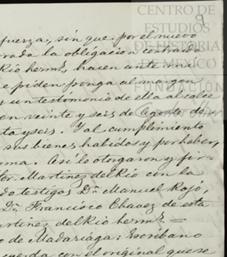 CENTRO DE
ESTUDIOS
DE HISTORIA
DE MÉXICO
FUNDACIÓN
9
fuerza, sin que por el nuevo
la obligación contraida
Rio herm.s, hacen ante mi
e piden ponga al margen
un testimonio de ella
en veinte y seis de Agosto de
ta y seis. Y al cumplimiento
sus bienes habidos y por haber,
ma. Así lo otorgaron y fir
Martinez del Rio con la
do testigos D.n Manuel Rojo,
D.n Francisco Chavez de esta
artinez del Rio herm.s =
o de Madariaga: Escribano
cuerda con el original que se